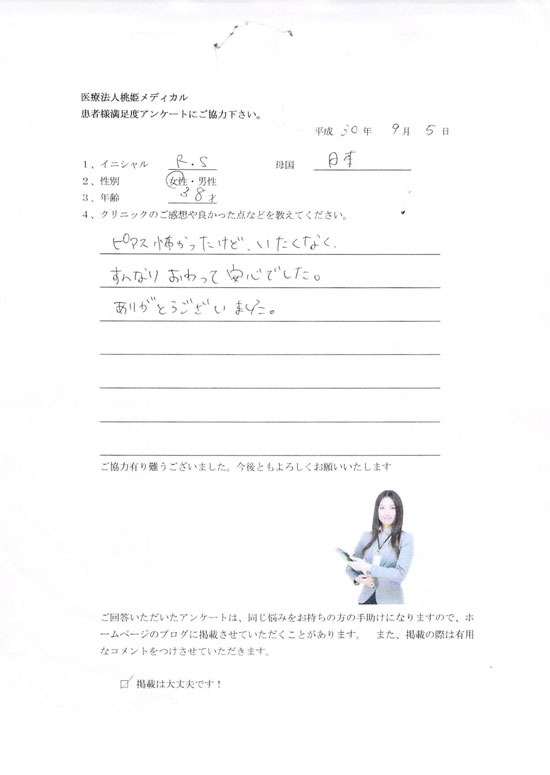 医療法人桃姫メディカル
患者様満足度アンケートにご協力下さい。
平成 30 年 9 月 5 日
1、イニシャル R.S 母国 日本
2、性別 女性・男性
3、年齢 38才
4、クリニックのご感想や良かった点などを教えてください。
ピアス怖かったけど、いたくなく、
すんなりおわって安心でした。
ありがとうございました。
ご協力有り難うございました。今後ともよろしくお願いいたします
ご回答いただいたアンケートは、同じ悩みをお持ちの方の手助けになりますので、ホ
ームページのブログに掲載させていただくことがあります。 また、掲載の際は有用
なコメントをつけさせていただきます。
☑ 掲載は大丈夫です！